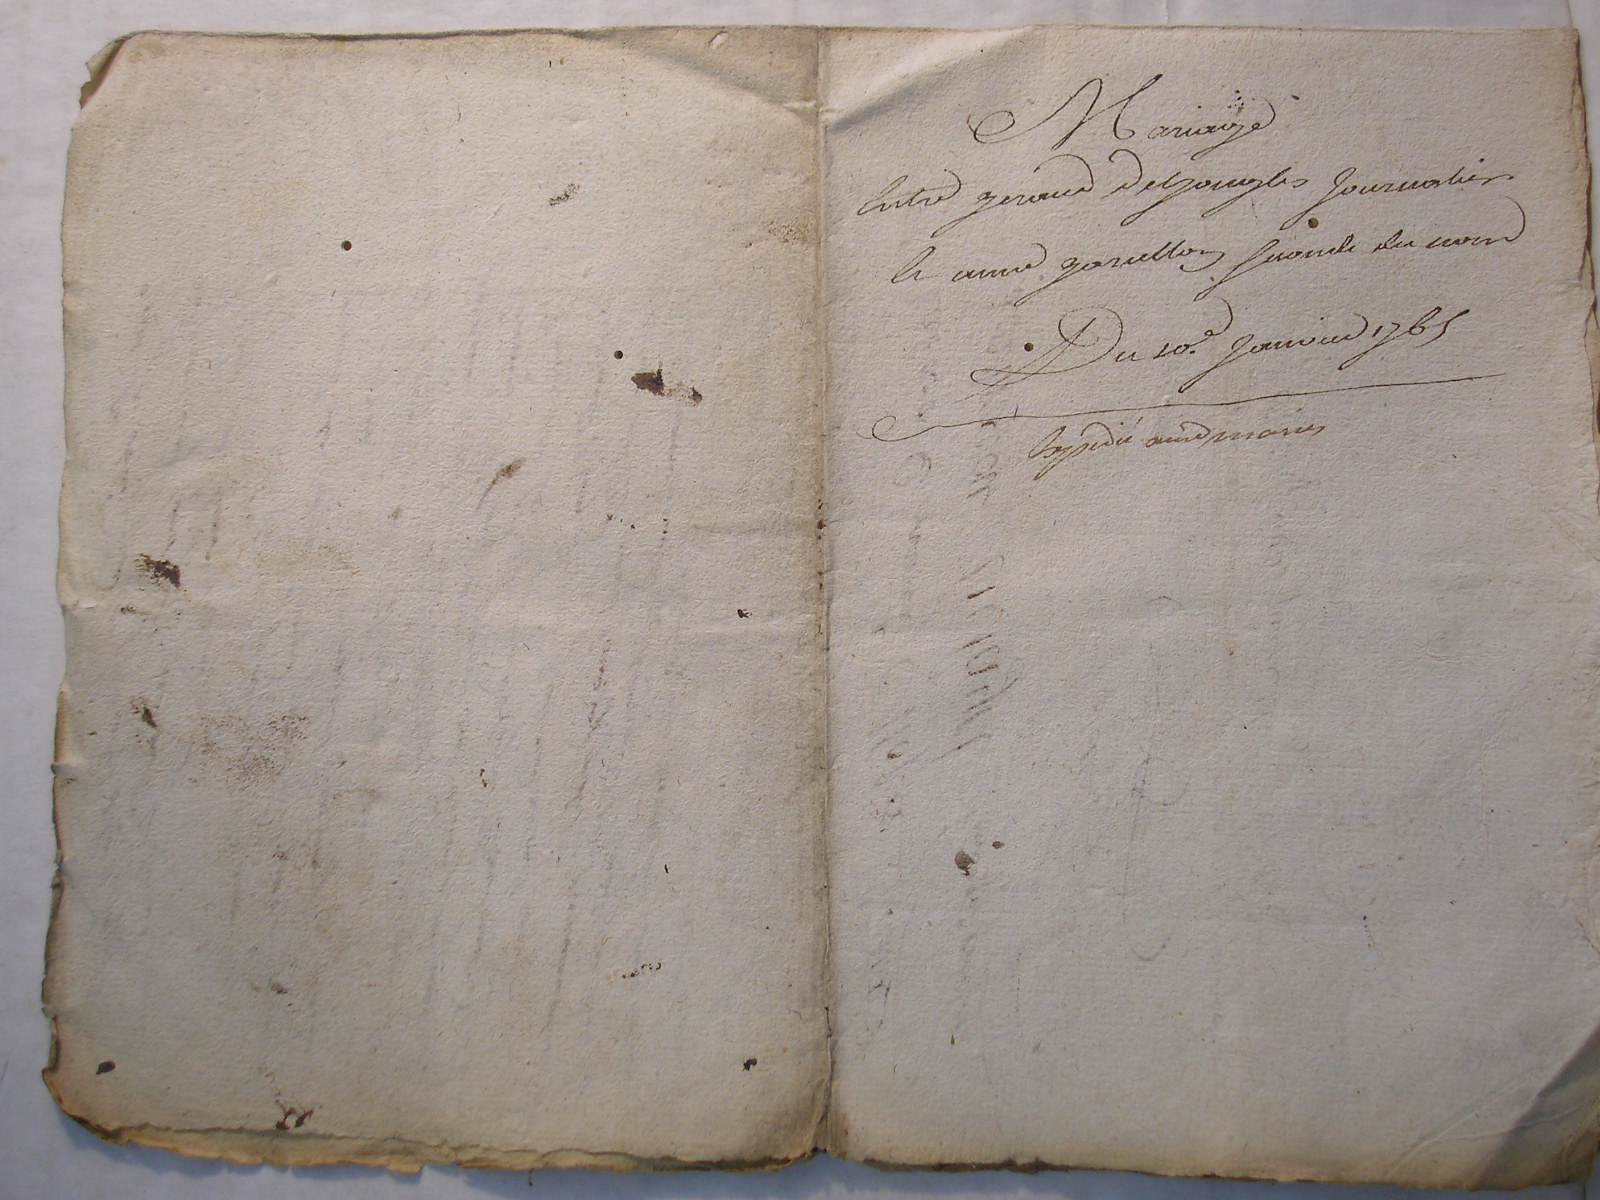 Mariage
Entre geraud deljougla journalier
et anne garellon seconde du nom
Du 10.e Janvier 1765
Expedié aud maries